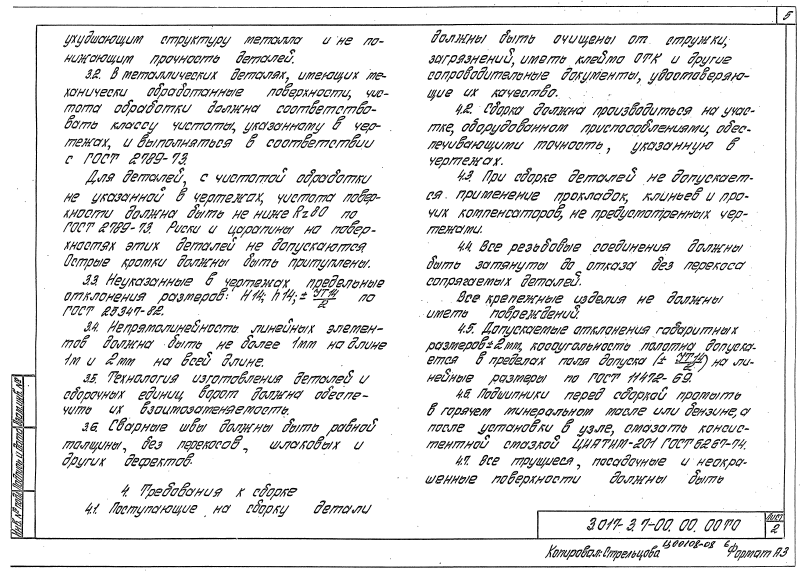 5
ухудшающим структуру металла и не по-
нижающим прочность деталей.
3.2. В металлических деталях, имеющих ме-
ханически обработанные поверхности, чис-
тота обработки должна соответство-
вать классу чистоты, указанному в чер-
тежах, и выполняться в соответствии
с ГОСТ 2789-73.
Для деталей, с чистотой обработки
не указанной в чертежах, чистота повер-
хности должна быть не ниже Rz80 по
ГОСТ 2789-73. Риски и царапины на повер-
хностях этих деталей не допускаются
Острые кромки должны быть притуплены.
3.3. Неуказанные в чертежах предельные
отклонения размеров: H14; h14; ± JT14/2 по
ГОСТ 25347-82.
3.4. Непрямолинейность линейных элемен-
тов должна быть не более 1мм на длине
1м и 2мм на всей длине.
3.5. Технология изготовления деталей и
сборочных единиц ворот должна обеспе-
чить их взаимозаменяемость.
3.6. Сварные швы должны быть равной
толщины, без перекосов, шлаковых и
других дефектов.
4. Требования к сборке
4.1. Поступающие на сборку детали
должны быть очищены от стружки,
загрязнений, иметь клейма ОТК и другие
сопроводительные документы, удостоверяю-
щие их качество.
4.2. Сборка должна производиться на учас-
тке, оборудованном приспособлениями, обес-
печивающими точность, указанную в
чертежах.
4.3. При сборке деталей не допускает-
ся применение прокладок, клиньев и про-
чих компенсаторов, не предусмотренных чер-
тежами.
4.4. Все резьбовые соединения должны
быть затянуты до отказа без перекоса
сопрягаемых деталей.
Все крепежные изделия не должны
иметь повреждений.
4.5. Допускаемые отклонения габаритных
размеров ± 2мм, косоугольность полотна допуска-
ется в пределах поля допуска (± JT14/2) на ли-
нейные размеры по ГОСТ 11472-69.
4.6. Подшипники перед сборкой промыть
в горячем минеральном масле или бензине, а
после установки в узле, смазать консис-
тентной смазкой ЦИАТИМ-201 ГОСТ 6267-74.
4.7. Все трущиеся, посадочные и неокра-
шенные поверхности должны быть
Инв. № подл. Подпись и дата Взам. инв. №
3.017-3.7-00.00.00ТО
Лист
2
Ц00108-08 6
Копировал: Стрельцова Формат А3